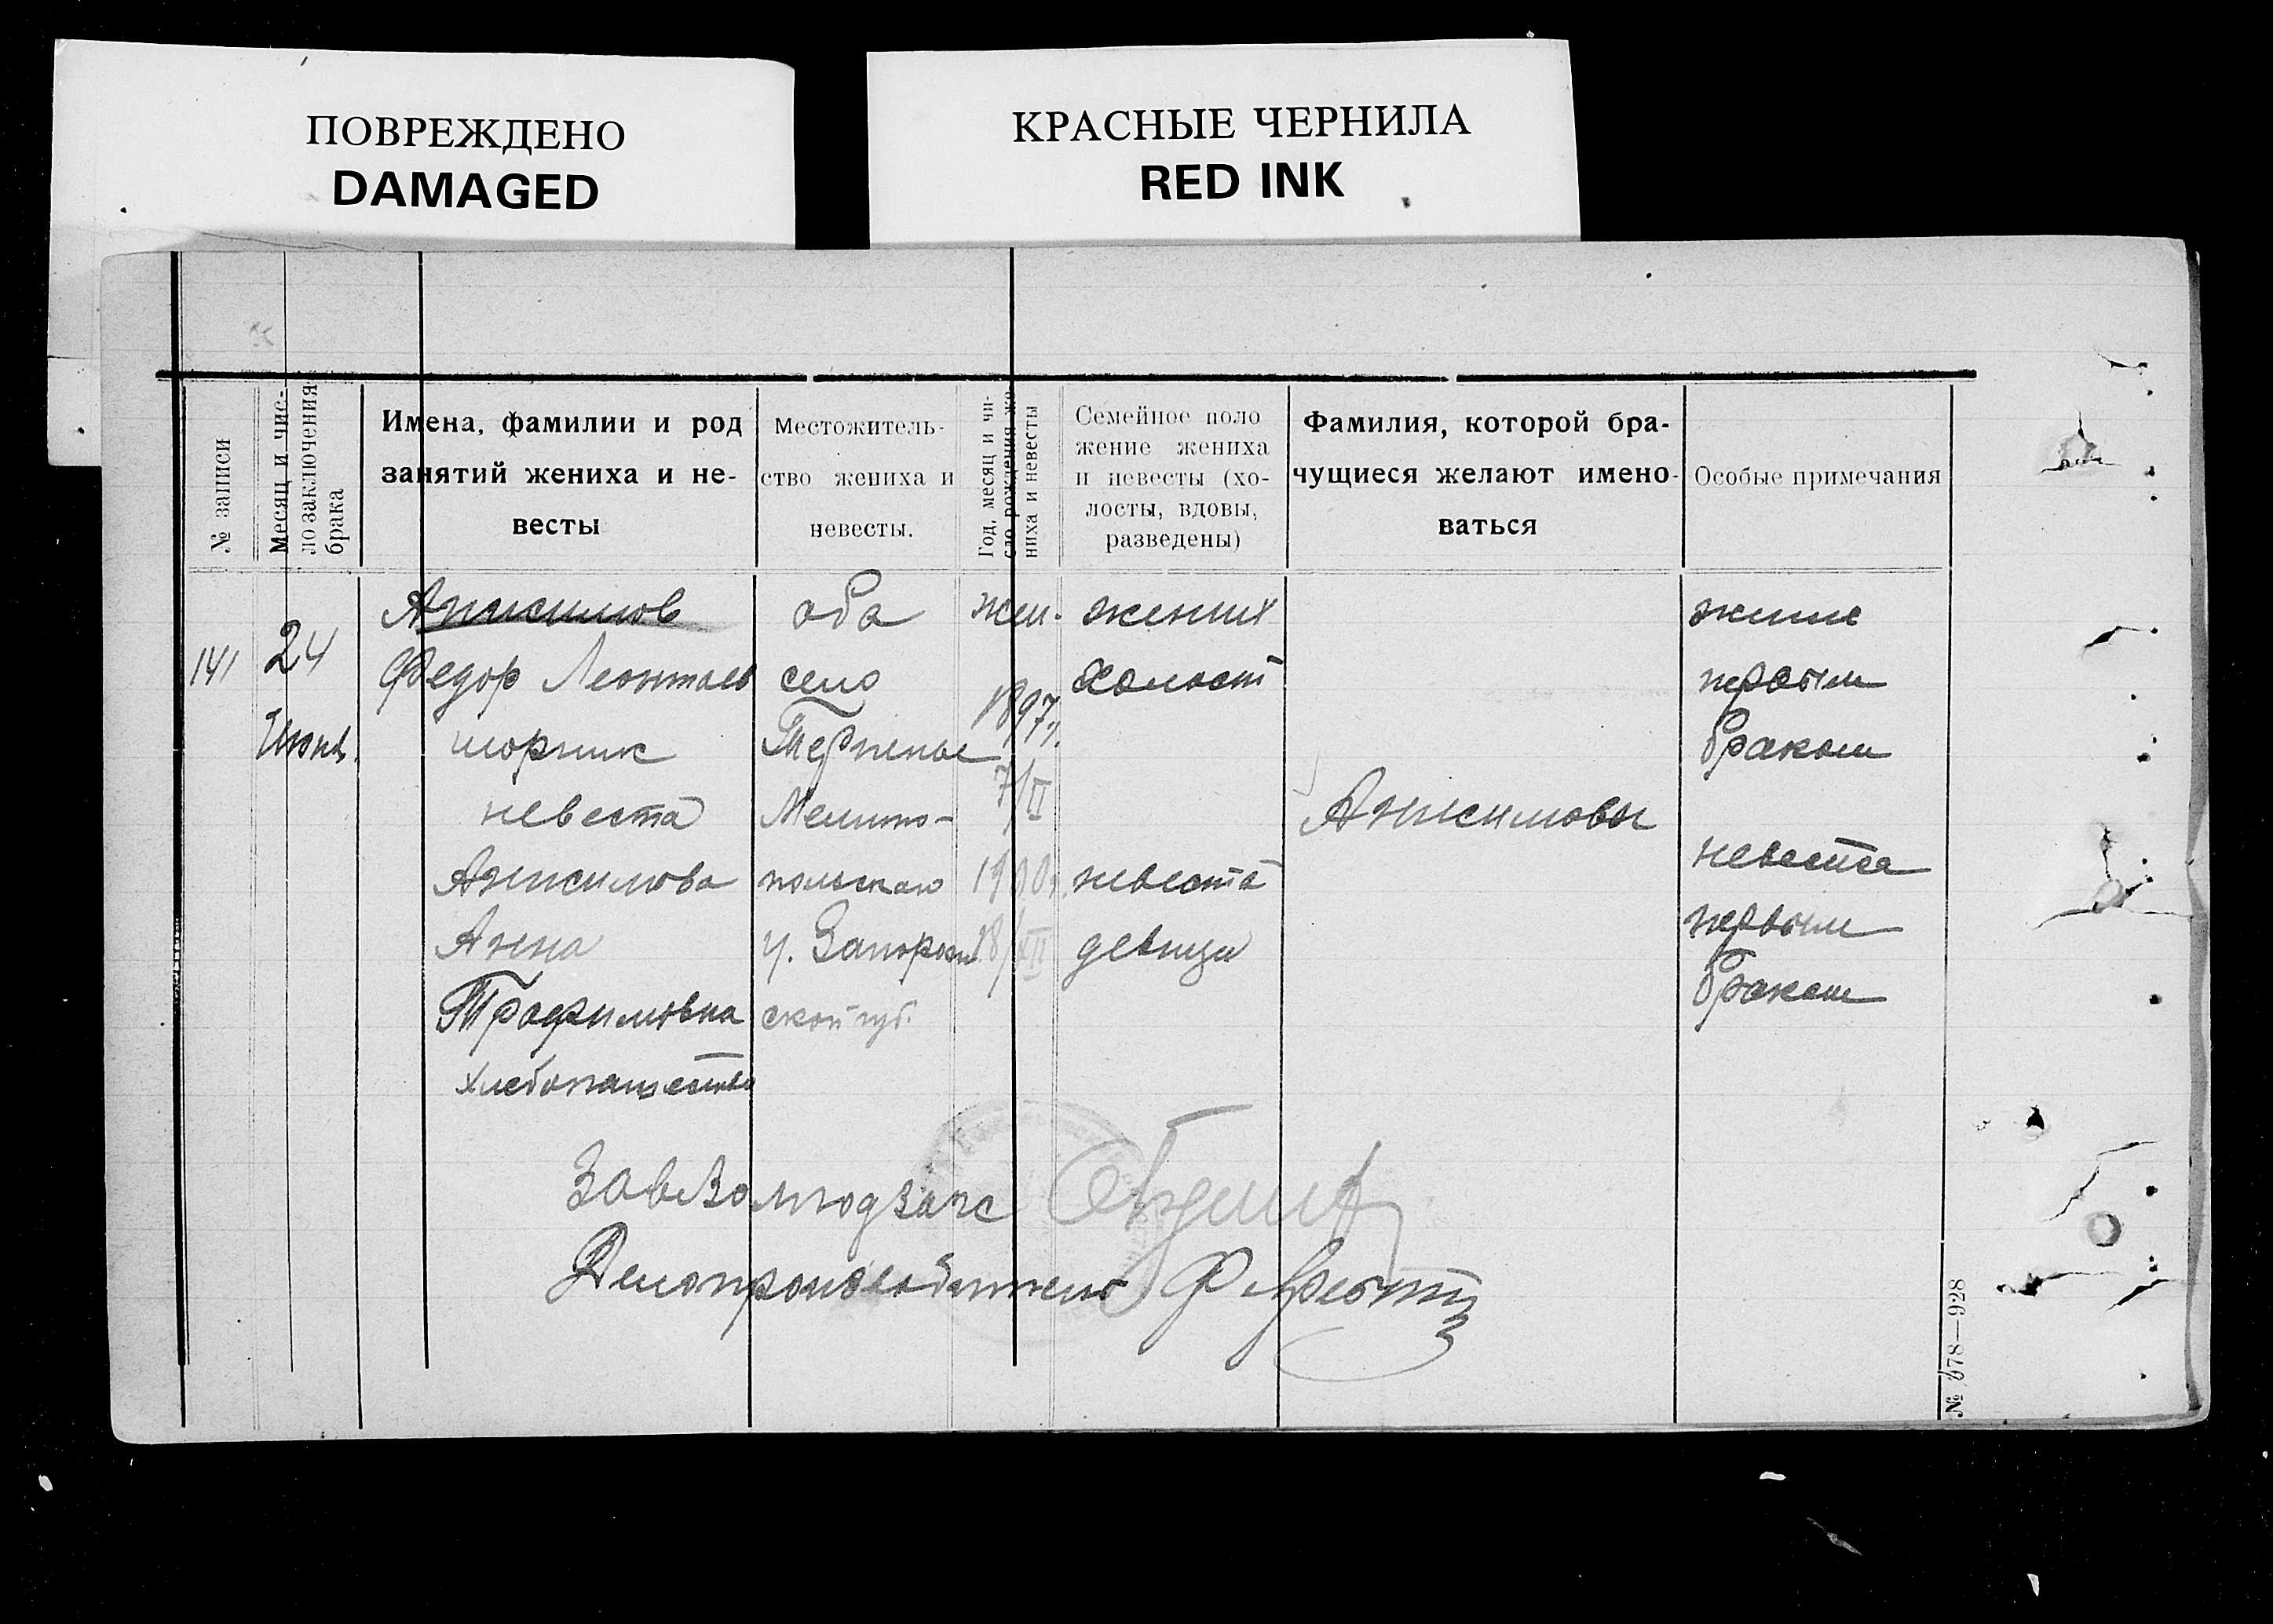 ПОВРЕЖДЕНО
DAMAGED
КРАСНЫЕ ЧЕРНИЛА
RED INK
№ записи
Месяц и чис-
ло заключения
брака
Имена, фамилии и род
занятий жениха и не-
весты
Местожитель-
ство жениха и
невесты.
Год, месяц и чи-
сло рождения же-
ниха и невесты
Семейное поло
жение жениха
и невесты (хо-
лосты, вдовы,
разведены)
Фамилия, которой бра-
чущиеся желают имено-
ваться
Особые примечания
141
24
Июнь.
Анисимов
Федор Леонтьев
шорник
невеста
Анисимова
Анна
Трофимовна
хлебопашество
оба
село
Терпенье
Мелито-
польскаго
у. Запорож
ской губ.
жен.
1897г.
7/II
1900г.
18/XII
жених
холост
невеста
девица
Анисимовы
жених
первым
браком
невеста
первым
браком
ЗавВолподзагс
Делопроизводитель
№ 678—928